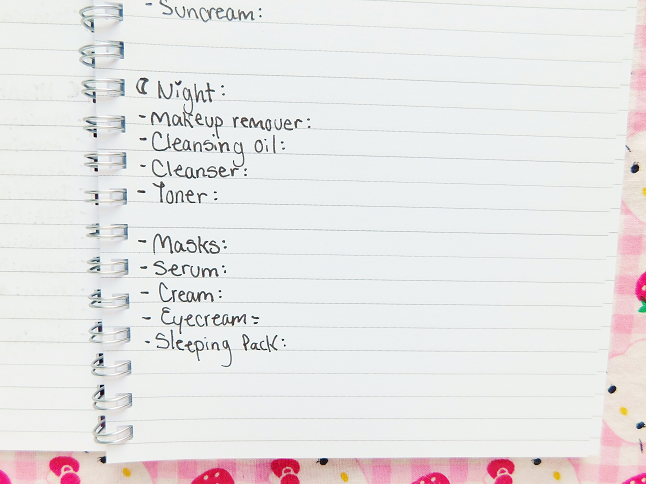 - Suncream:
☾ Night:
- Makeup remover:
- Cleansing oil:
- Cleanser:
- Toner:
- Masks:
- Serum:
- Cream:
- Eyecream:
- Sleeping Pack: